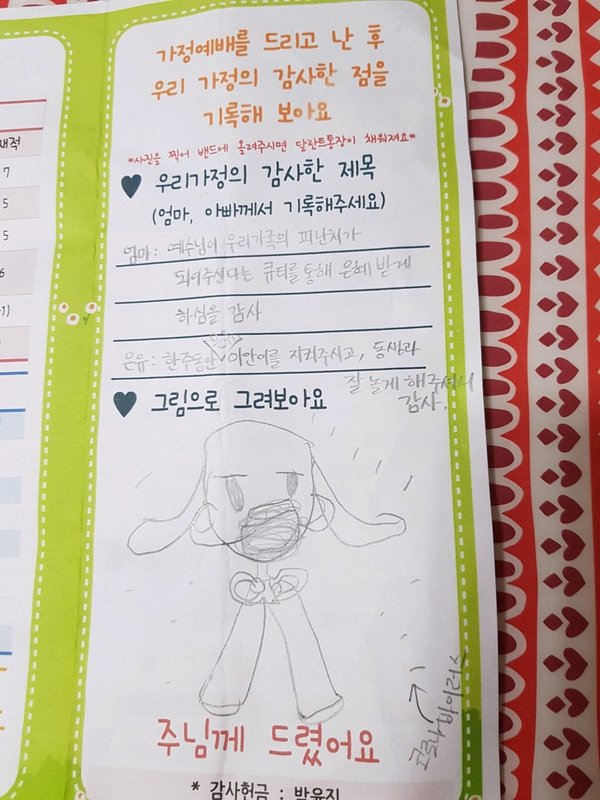 가정예배를 드리고 난 후
우리 가정의 감사한 점을
기록해 보아요
*사진을 찍어 밴드에 올려주시면 달란트통장이 채워져요*
♥ 우리가정의 감사한 제목
(엄마, 아빠께서 기록해주세요)
엄마: 예수님이 우리가족의 피난처가
되어주신다는 큐티를 통해 은혜 받게
하심을 감사
은유: 한주동안 이안이를 지켜주시고, 동생과
잘 놀게 해주셔서
감사.
♥ 그림으로 그려보아요
코로나바이러스
주님께 드렸어요
* 감사헌금 : 박유진
재적
7
5
5
6